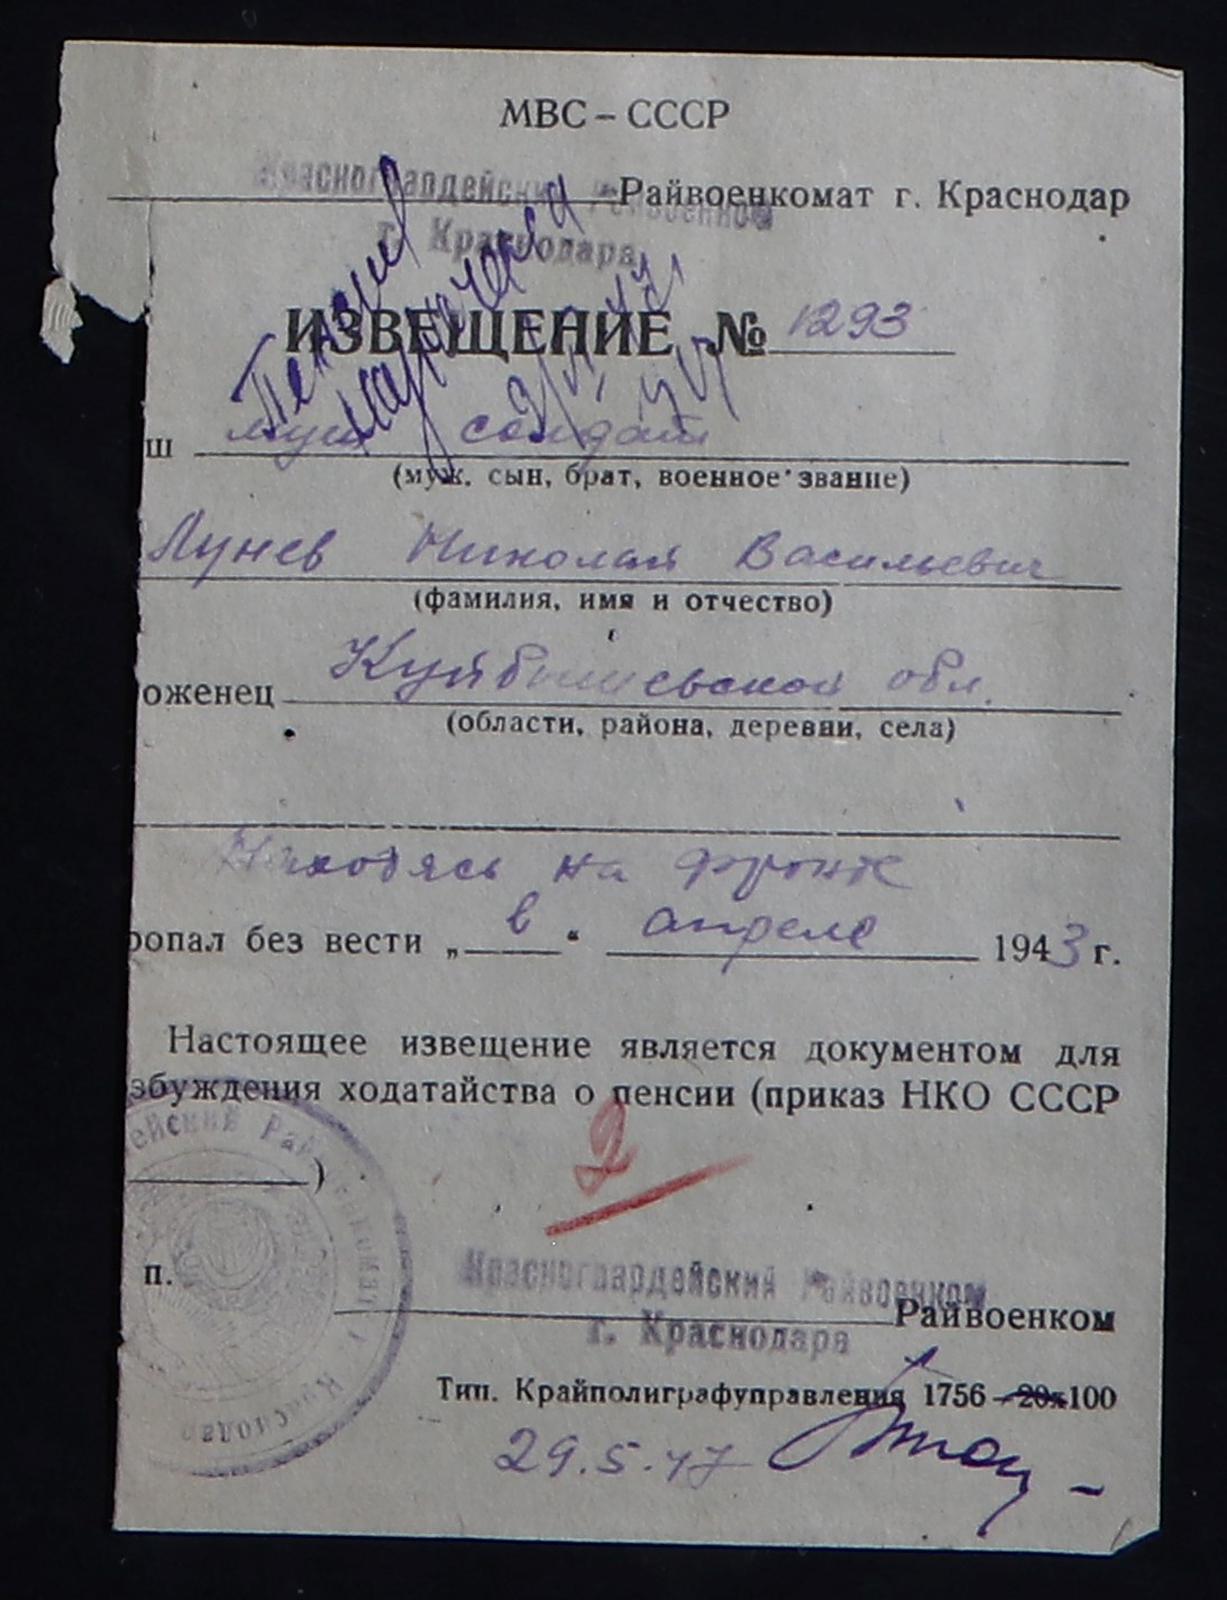 МВС – СССР
Красногвардейский Райвоенком
Райвоенкомат г. Краснодар
г. Краснодара
Пенсия
назначена
ИЗВЕЩЕНИЕ № 1293
ш муж солдат
(муж, сын, брат, военное звание)
Лунев Николай Васильевич
(фамилия, имя и отчество)
оженец Куйбышевской обл.
(области, района, деревни, села)
Находясь на фронте
ропал без вести „ в “ апреле 1943 г.
Настоящее извещение является документом для
збуждения ходатайства о пенсии (приказ НКО СССР
2
)
п.
ейский Райвоенкомат г. Краснодар
Красногвардейский Райвоенком
Райвоенком
г. Краснодара
Тип. Крайполиграфуправления 1756—20х100
29.5.47